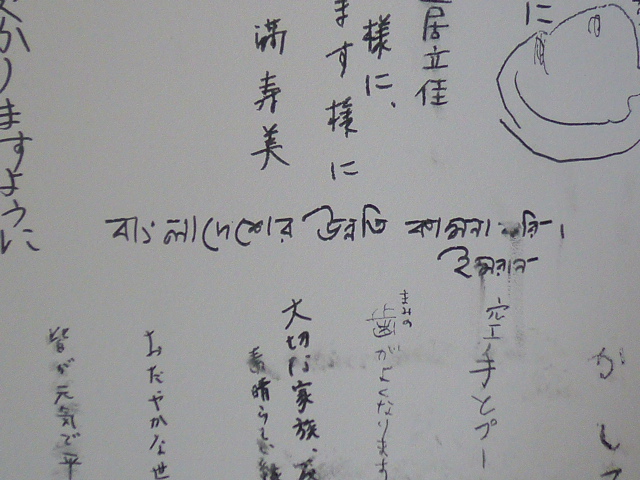 に
居立佳
様に、
ます様に
満寿美
かりますように
বাংলাদেশের উন্নতি কামনা করি।
ইমরান
かして
まみの
歯がよくなります
大切な家族、
素晴らしい
おだやかな世
皆が元気で平